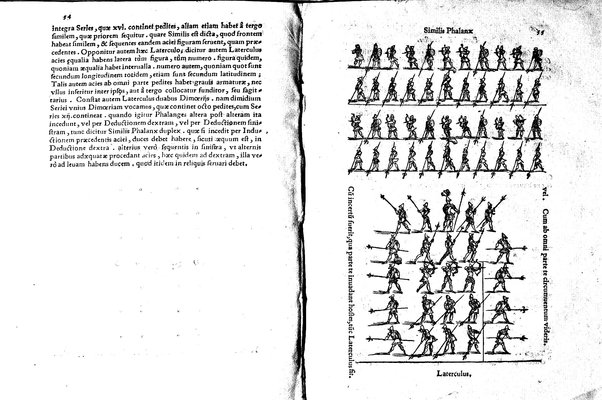 54
integra Series, quæ xvi. continet pedites, aliam etiam habet à tergo
similem, quæ priorem sequitur. quare Similis est dicta, quòd frontem
habeat similem, & sequentes eandem aciei figuram seruent, quam præ-
cedentes. Opponitur autem hæc Laterculo; dicitur autem Laterculus
acies equalia habens latera tùm figura, tùm numero. figura quidem,
quoniam æqualia habet interualla. numero autem, quoniam quot sunt
secundum longitudinem totidem, etiam sunt secundum latitudinem;
Talis autem acies ab omni parte pedites habet grauis armaturæ, nec
vllus inseritur inter ipsos, aut à tergo collocatur funditor, seu sagit-
tarius. Constat autem Laterculus duabus Dimœrijs. nam dimidium
Seriei vnius Dimœriam vocamus, quæ continet octo pedites, cum Se-
ries xvj. contineat. quando igitur Phalanges altera post alteram ita
incedunt, vel per Deductionem dextram, vel per Deductionem sini-
stram, tunc dicitur Similis Phalanx duplex. quæ si incedit per Indu-
ctionem præcedentis aciei, duces debet habere, sicuti æquum est, in
Deductione dextra. alterius verò sequentis in sinistra, vt alternis
partibus adæquatæ procedant acies, hæc quidem ad dextram, illa ve-
rò ad leuam habens ducem. quod itidem in reliquis seruari debet.
Similis Phalanx
55
Cū incertū fuerit, qua parte te inuadant hostes, sic Laterculus fit.
vel. Cum ab omni parte te circumuentum videris.
Laterculus.